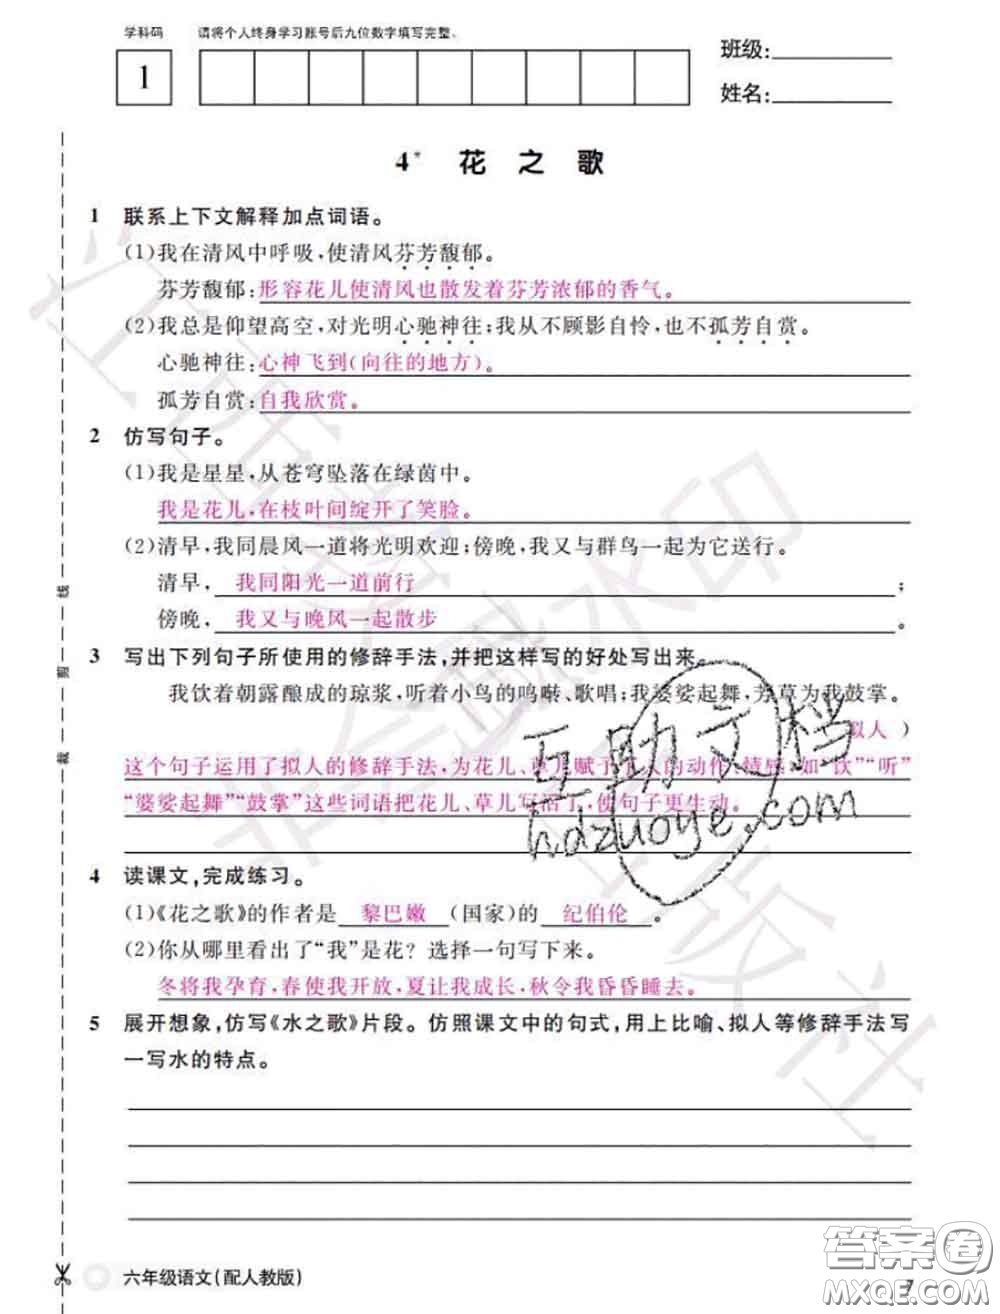 学科码 请将个人终身学习账号后九位数字填写完整。
1
班级:
姓名:
4* 花之歌
1 联系上下文解释加点词语。
(1)我在清风中呼吸,使清风芬芳馥郁。
芬芳馥郁:形容花儿使清风也散发着芬芳浓郁的香气。
(2)我总是仰望高空,对光明心驰神往;我从不顾影自怜,也不孤芳自赏。
心驰神往:心神飞到(向往的地方)。
孤芳自赏:自我欣赏。
2 仿写句子。
(1)我是星星,从苍穹坠落在绿茵中。
我是花儿,在枝叶间绽开了笑脸。
(2)清早,我同晨风一道将光明欢迎;傍晚,我又与群鸟一起为它送行。
清早, 我同阳光一道前行 ;
傍晚, 我又与晚风一起散步 。
3 写出下列句子所使用的修辞手法,并把这样写的好处写出来。
我饮着朝露酿成的琼浆,听着小鸟的鸣啭、歌唱;我婆娑起舞,芳草为我鼓掌。
拟人 )
这个句子运用了拟人的修辞手法,为花儿、草儿赋予了人的动作、情感,如“饮”“听”
“婆娑起舞”“鼓掌”这些词语把花儿、草儿写活了,使句子更生动。
4 读课文,完成练习。
(1)《花之歌》的作者是 黎巴嫩 (国家)的 纪伯伦 。
(2)你从哪里看出了“我”是花? 选择一句写下来。
冬将我孕育,春使我开放,夏让我成长,秋令我昏昏睡去。
5 展开想象,仿写《水之歌》片段。仿照课文中的句式,用上比喻、拟人等修辞手法写
一写水的特点。
线 剪 裁
六年级语文(配人教版)
7
互助文档
hdzuoye.com
答案圈
MXQE.COM